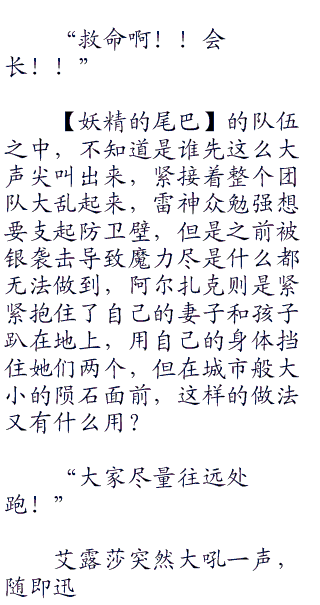 “救命啊！！会
长！！”
【妖精的尾巴】的队伍
之中，不知道是谁先这么大
声尖叫出来，紧接着整个团
队大乱起来，雷神众勉强想
要支起防卫壁，但是之前被
银袭击导致魔力尽是什么都
无法做到，阿尔扎克则是紧
紧抱住了自己的妻子和孩子
趴在地上，用自己的身体挡
住她们两个，但在城市般大
小的陨石面前，这样的做法
又有什么用？
“大家尽量往远处
跑！”
艾露莎突然大吼一声，
随即迅